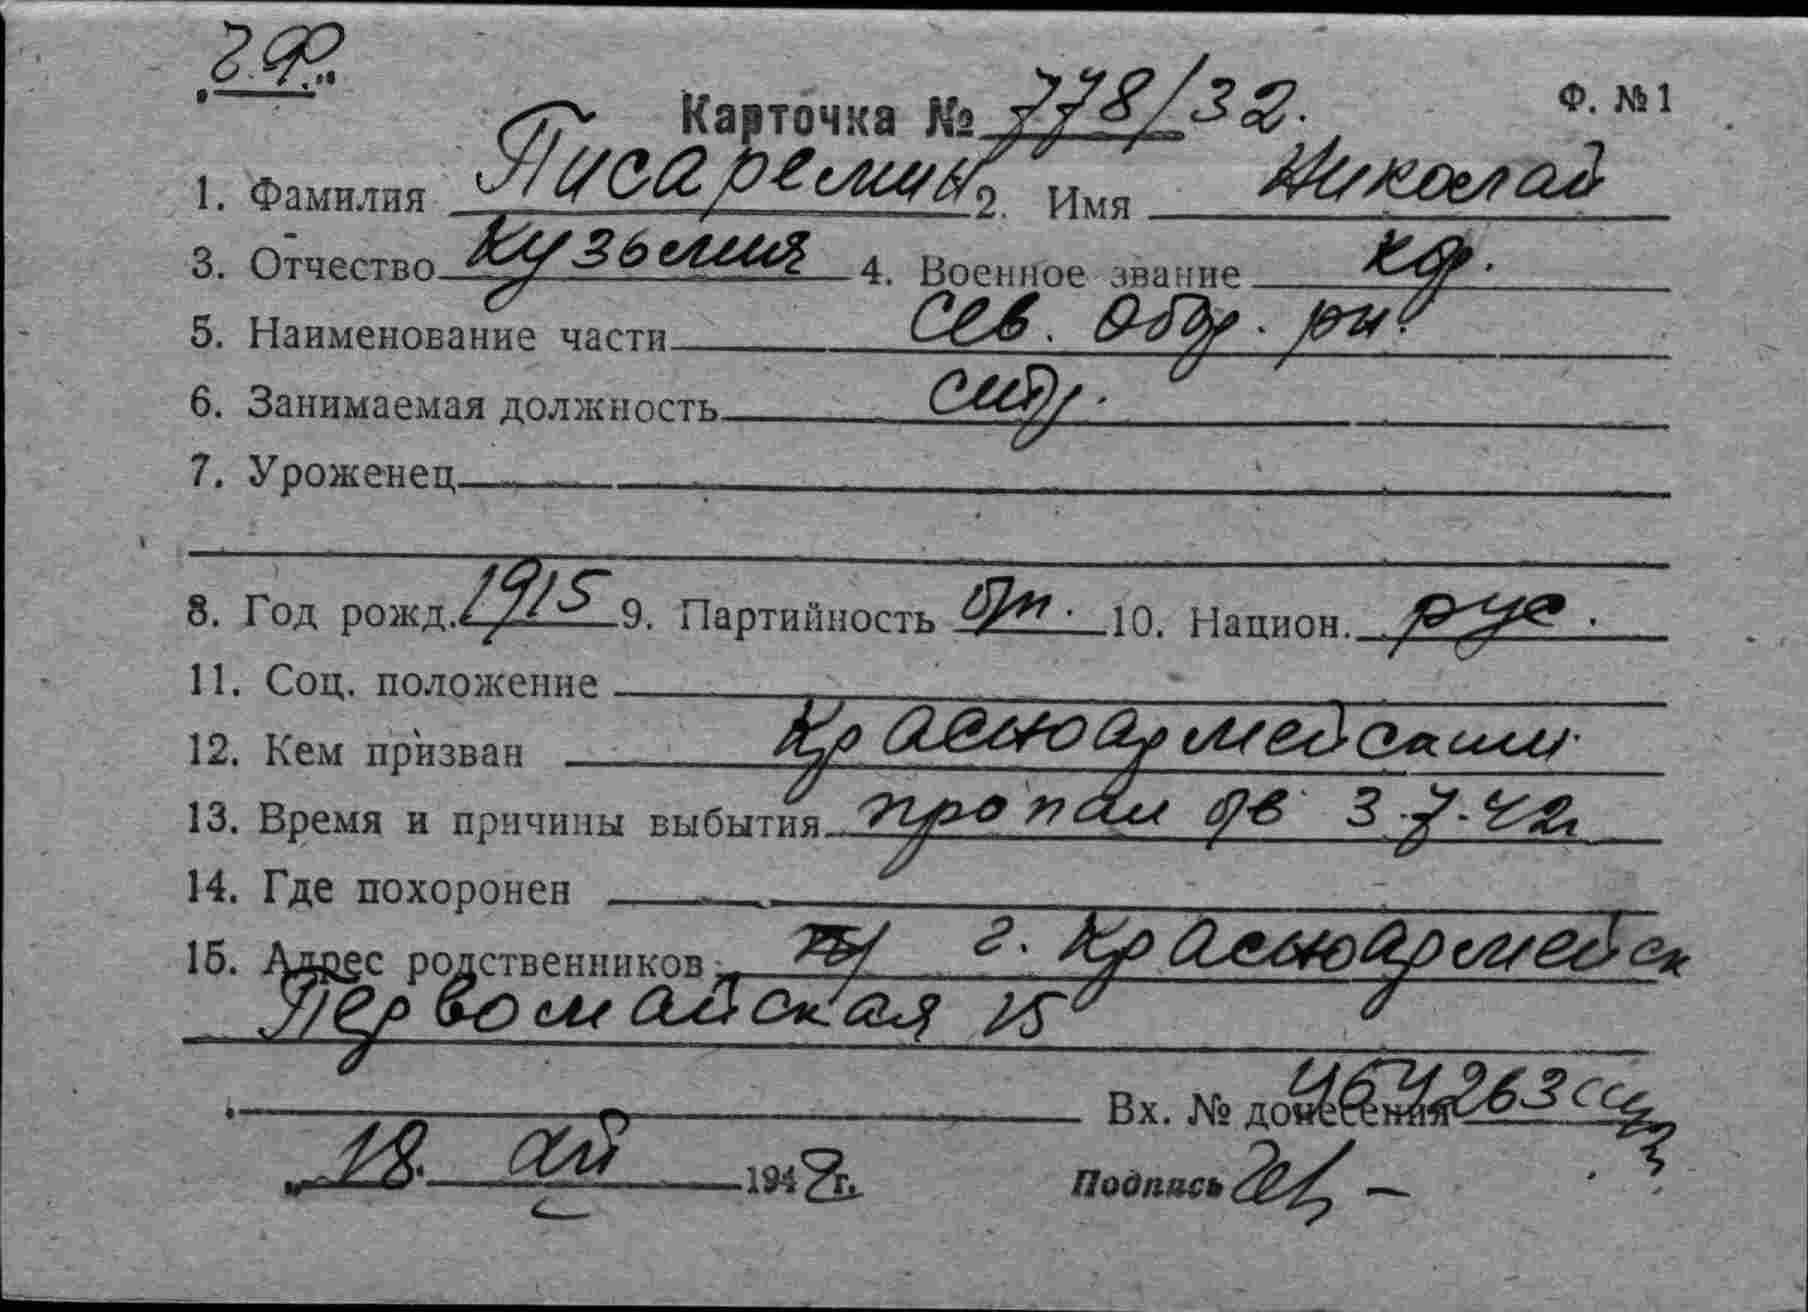 Ч.Ф.
Карточка № 778/32. Ф. №1
1. Фамилия Писаремин 2. Имя Николай
3. Отчество Кузьмич 4. Военное звание кр.
5. Наименование части Сев. обор. рн.
6. Занимаемая должность
7. Уроженец
8. Год рожд. 1915 9. Партийность 10. Национ. рус.
11. Соц. положение
12. Кем призван Красноармейским
13. Время и причины выбытия пропал 3.7.42г
14. Где похоронен
15. Адрес родственников г. Красноармейск
Первомайская 15
Вх. № донесения
18. 194 г. Подпись